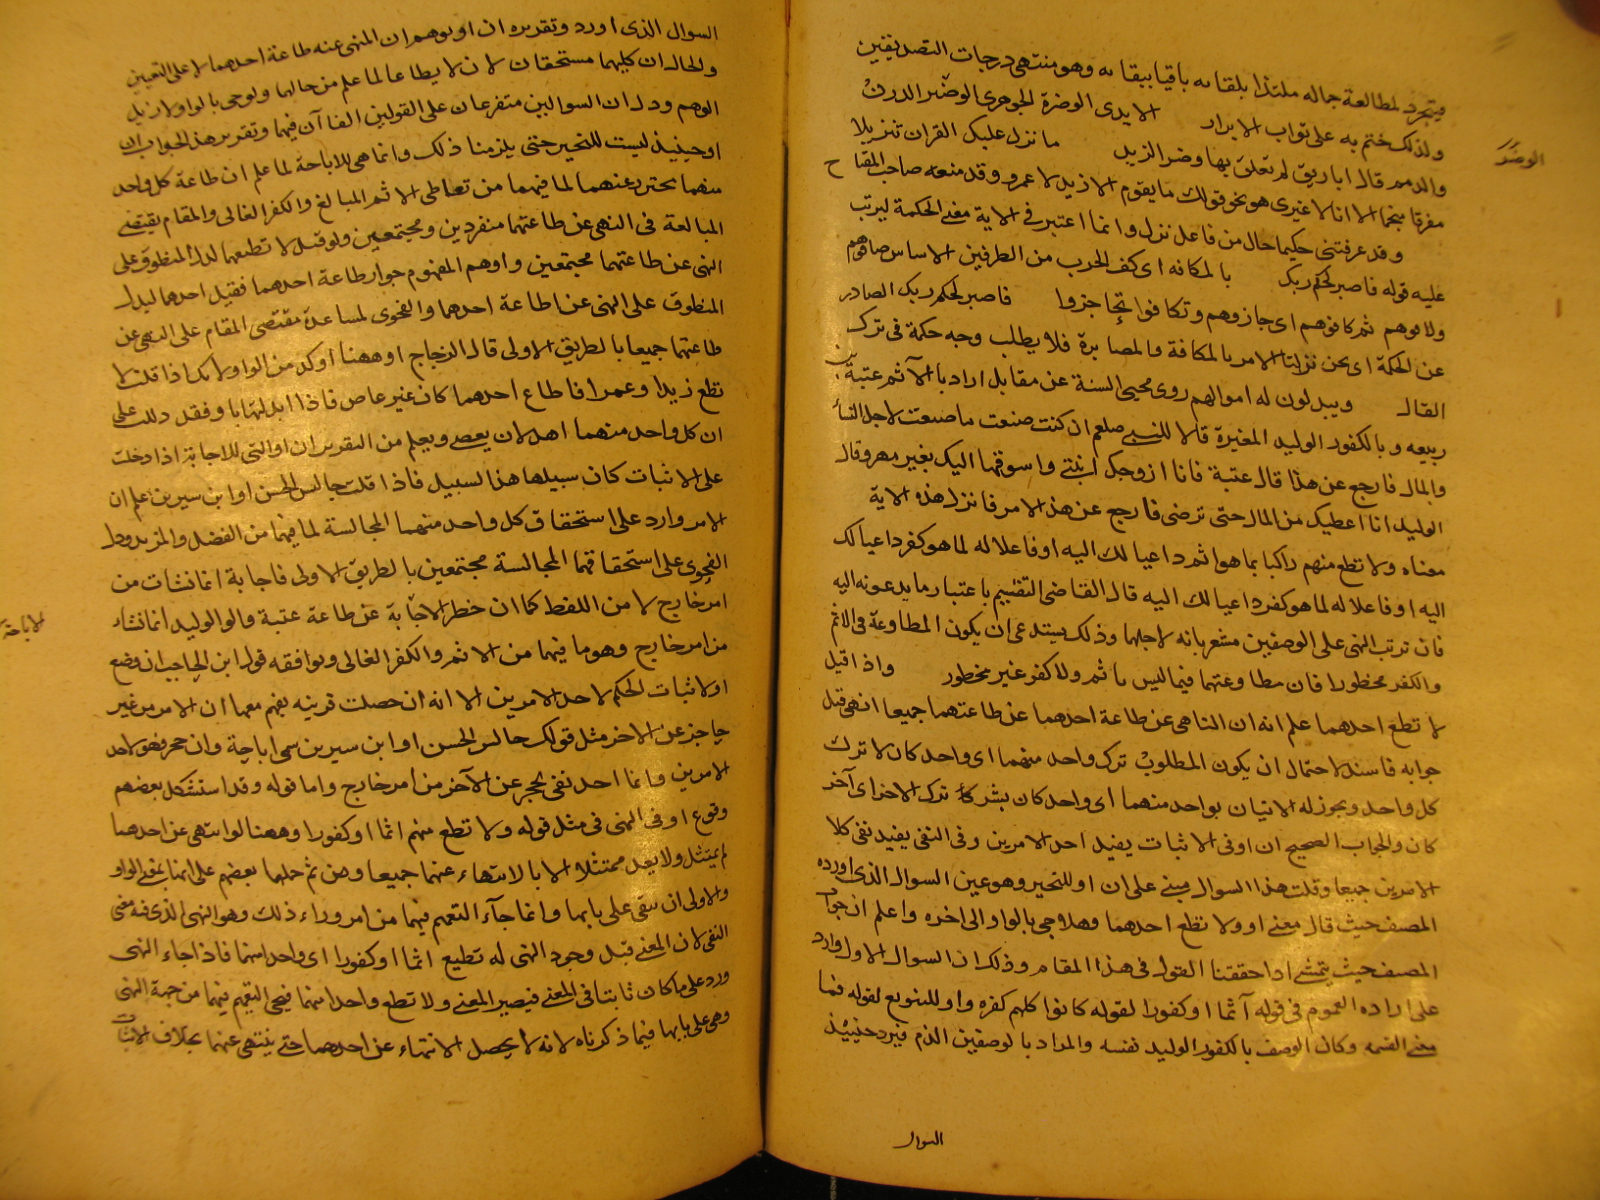 فيتجرد لمطالعة جماله ملتذا بلقائه باقيا ببقائه وهو منتهى درجات الصديقين
ولذلك ختم به على ثواب الابرار الايدى الوضرة الجوهرى الوضر الدرن
الوضر
والدسم قال اباريق لم تعلق بها وضر الزبد ما نزل عليك القران تنزيلا
مفرقا منجما الا انا لا غيرى هو نحو قولك ما يقوم الا زيد لا عمرو وقد منعه صاحب المفتاح
وقد عرفتنى حكيما حال من فاعل نزل وانما اعتبر فى الاية معنى الحكمة ليرتب
عليه قوله فاصبر لحكم ربك بالمكافه اى كف الحرب من الطرفين الاساس صافوهم
ولافوهم ثم كافوهم اى جازوهم وتكافوا تحاجزوا فاصبر لحكم ربك الصادر
عن الحكمة اى نحن نزلنا الامر بالمكافة والمصابرة فلا يطلب وجه حكمة فى ترك
القتال ويبدلون له اموالهم روى محيى السنة عن مقاتل اراد بالآثم عتبة بن
ربيعه وبالكفور الوليد المغيرة قالا للنبى صلعم ان كنت صنعت ما صنعت لاجل النساء
والمال فارجع عن هذا قال عتبة فانا ازوجك ابنتى واسوقها اليك بغير مهر وقال
الوليد انا اعطيك من المال حتى ترضى فارجع عن هذا الامر فانزل هذه الاية
معناه ولا تطع منهم راكبا بما هو اثم داعيا لك اليه او فاعلا له لما هو كفر داعيا لك
اليه او فاعلا له لما هو كفر داعيا لك اليه قال القاضى التقسيم باعتبار ما يدعونه اليه
فان ترتب النهى على الوصفين مشعر بانه لاجلها وذلك يستدعى ان يكون المطاوعة فى الاثم
والكفر محظورا فان مطاوعتهما فيما ليس باثم ولا كفر غير محظور واذا قيل
لا تطع احدهما علم انه ان الناهى عن طاعة احدهما عن طاعتهما جميعا انهى قيل
جوابه فاسد لاحتمال ان يكون المطلوب ترك واحد منهما اى واحد كان لا ترك
كل واحد ويجوز له الاتيان بواحد منهما اى واحد كان بشرط ترك الاخر اى آخر
كان والجواب الصحيح ان او فى الاثبات يفيد احد الامرين وفى النفى يفيد نفى كلا
الامرين جميعا وقلت هذا السوال مبنى على ان او للتخير وهو عين السوال الذى اورده
المصنف حيث قال معنى او ولا تطع احدهما وهلا جى بالواو الى اخره واعلم ان جواب
المصنف حيث يتمشى اذا حققنا القول فى هذا المقام وذلك ان السوال الاول وارد
على اراده العموم فى قوله آثما او كفورا لقوله كانوا كلهم كفرة واو للتنويع لقوله فما
معنى القسمة وكان الوصف بالكفور الوليد نفسه والمراد بالوصفين الذم فيرد حينيذ
السوال
السوال الذى اورد وتقديره ان او يوهم ان المنهى عنه طاعة احدهما لا على التعيين
والحال ان كليهما مستحقان لان لا يطاعا لما علم من حالهما ولو جى بالواو لازيل
الوهم ودل ان السوالين متفرعان على القولين الفاآن فيهما وتقرير هذا الجواب ان
او حينيذ ليست للتخير حتى يلزمنا ذلك وانما هى للاباحة لما علم ان طاعة كل واحد
منهما يحترز عنهما لما فيهما من تعاطى الاثم المبالغ والكفر الغالى والمقام يقتضى
المبالغة فى النهى عن طاعتهما منفردين ومجتمعين ولو قيل لا تطعهما لدل المنطوق على
النهى عن طاعتهما مجتمعين واوهم المفهوم جواز طاعة احدهما فقيل احدهما ليدل
المنطوق على النهى عن اطاعة احدهما والفحوى لمساعدة مقتضى المقام على النهى عن
طاعتهما جميعا بالطريق الاولى قال الزجاج او ههنا اوكد من الواو لانك اذا قلت لا
تطع زيدا وعمرا فاطاع احدهما كان غير عاص فاذا ابدلتها باو فقد دللت على
ان كل واحد منهما اهل لان يعصى ويعلم من التقرير ان او التى للاجابة اذا دخلت
على الاثبات كان سبيلها هذا السبيل فاذا قلت جالس الحسن او ابن سيرين علم ان
الامر وارد على استحقاق كل واحد منهما المجالسة لما فيهما من الفضل والمزيد ودل
الفحوى على استحقاقهما المجالسة مجتمعين بالطريق الاولى فاجابة انما نشات من
امر خارج لا من اللفظ كما ان خطر الاجابة عن طاعة عتبة والوالوليد انما نشاء
الاباحة
من امر خارج وهو ما فيهما من الاثم والكفر الغالى ويوافقه قول ابن الحاجب ان وضع
او لاثبات الحكم لاحد الامرين الا انه ان حصلت قرينه يفهم معها ان الامر من غير
حاجز عن الاخر مثل قولك جالس الحسن او ابن سيرين سمى اباحة وان حجر فهو لاحد
الامرين وانما احد نفى بحجر عن الآخر من امر خارج واما قوله وقد استشكل بعضهم
وقوع او فى النهى فى مثل قوله ولا تطع منهم اثما او كفورا وههنا لو انتهى عن احدهما
لم يمتثل ولا يعد ممتثلا الا بالانتهاء عنهما جميعا ومن ثم حملها بعضهم على انها بمعنى الواو
والاولى ان تبقى على بابها وانما جاء التعميم فيهما من امر وراء ذلك وهو النهى الذى فيه معنى
النفى لان المعنى قبل وجود النهى له تطيع اثما او كفورا اى واحدا منهما فاذا جاء النهى
ورد على ما كان ثابتا فى المعنى فيصير المعنى ولا تطع واحدا منهما فيجى التعميم فيهما من جهة النهى
وهى على بابها فيما ذكرناه لانه لا يحصل الانتهاء عن احدهما حتى ينتهى عنهما بخلاف الاثبات